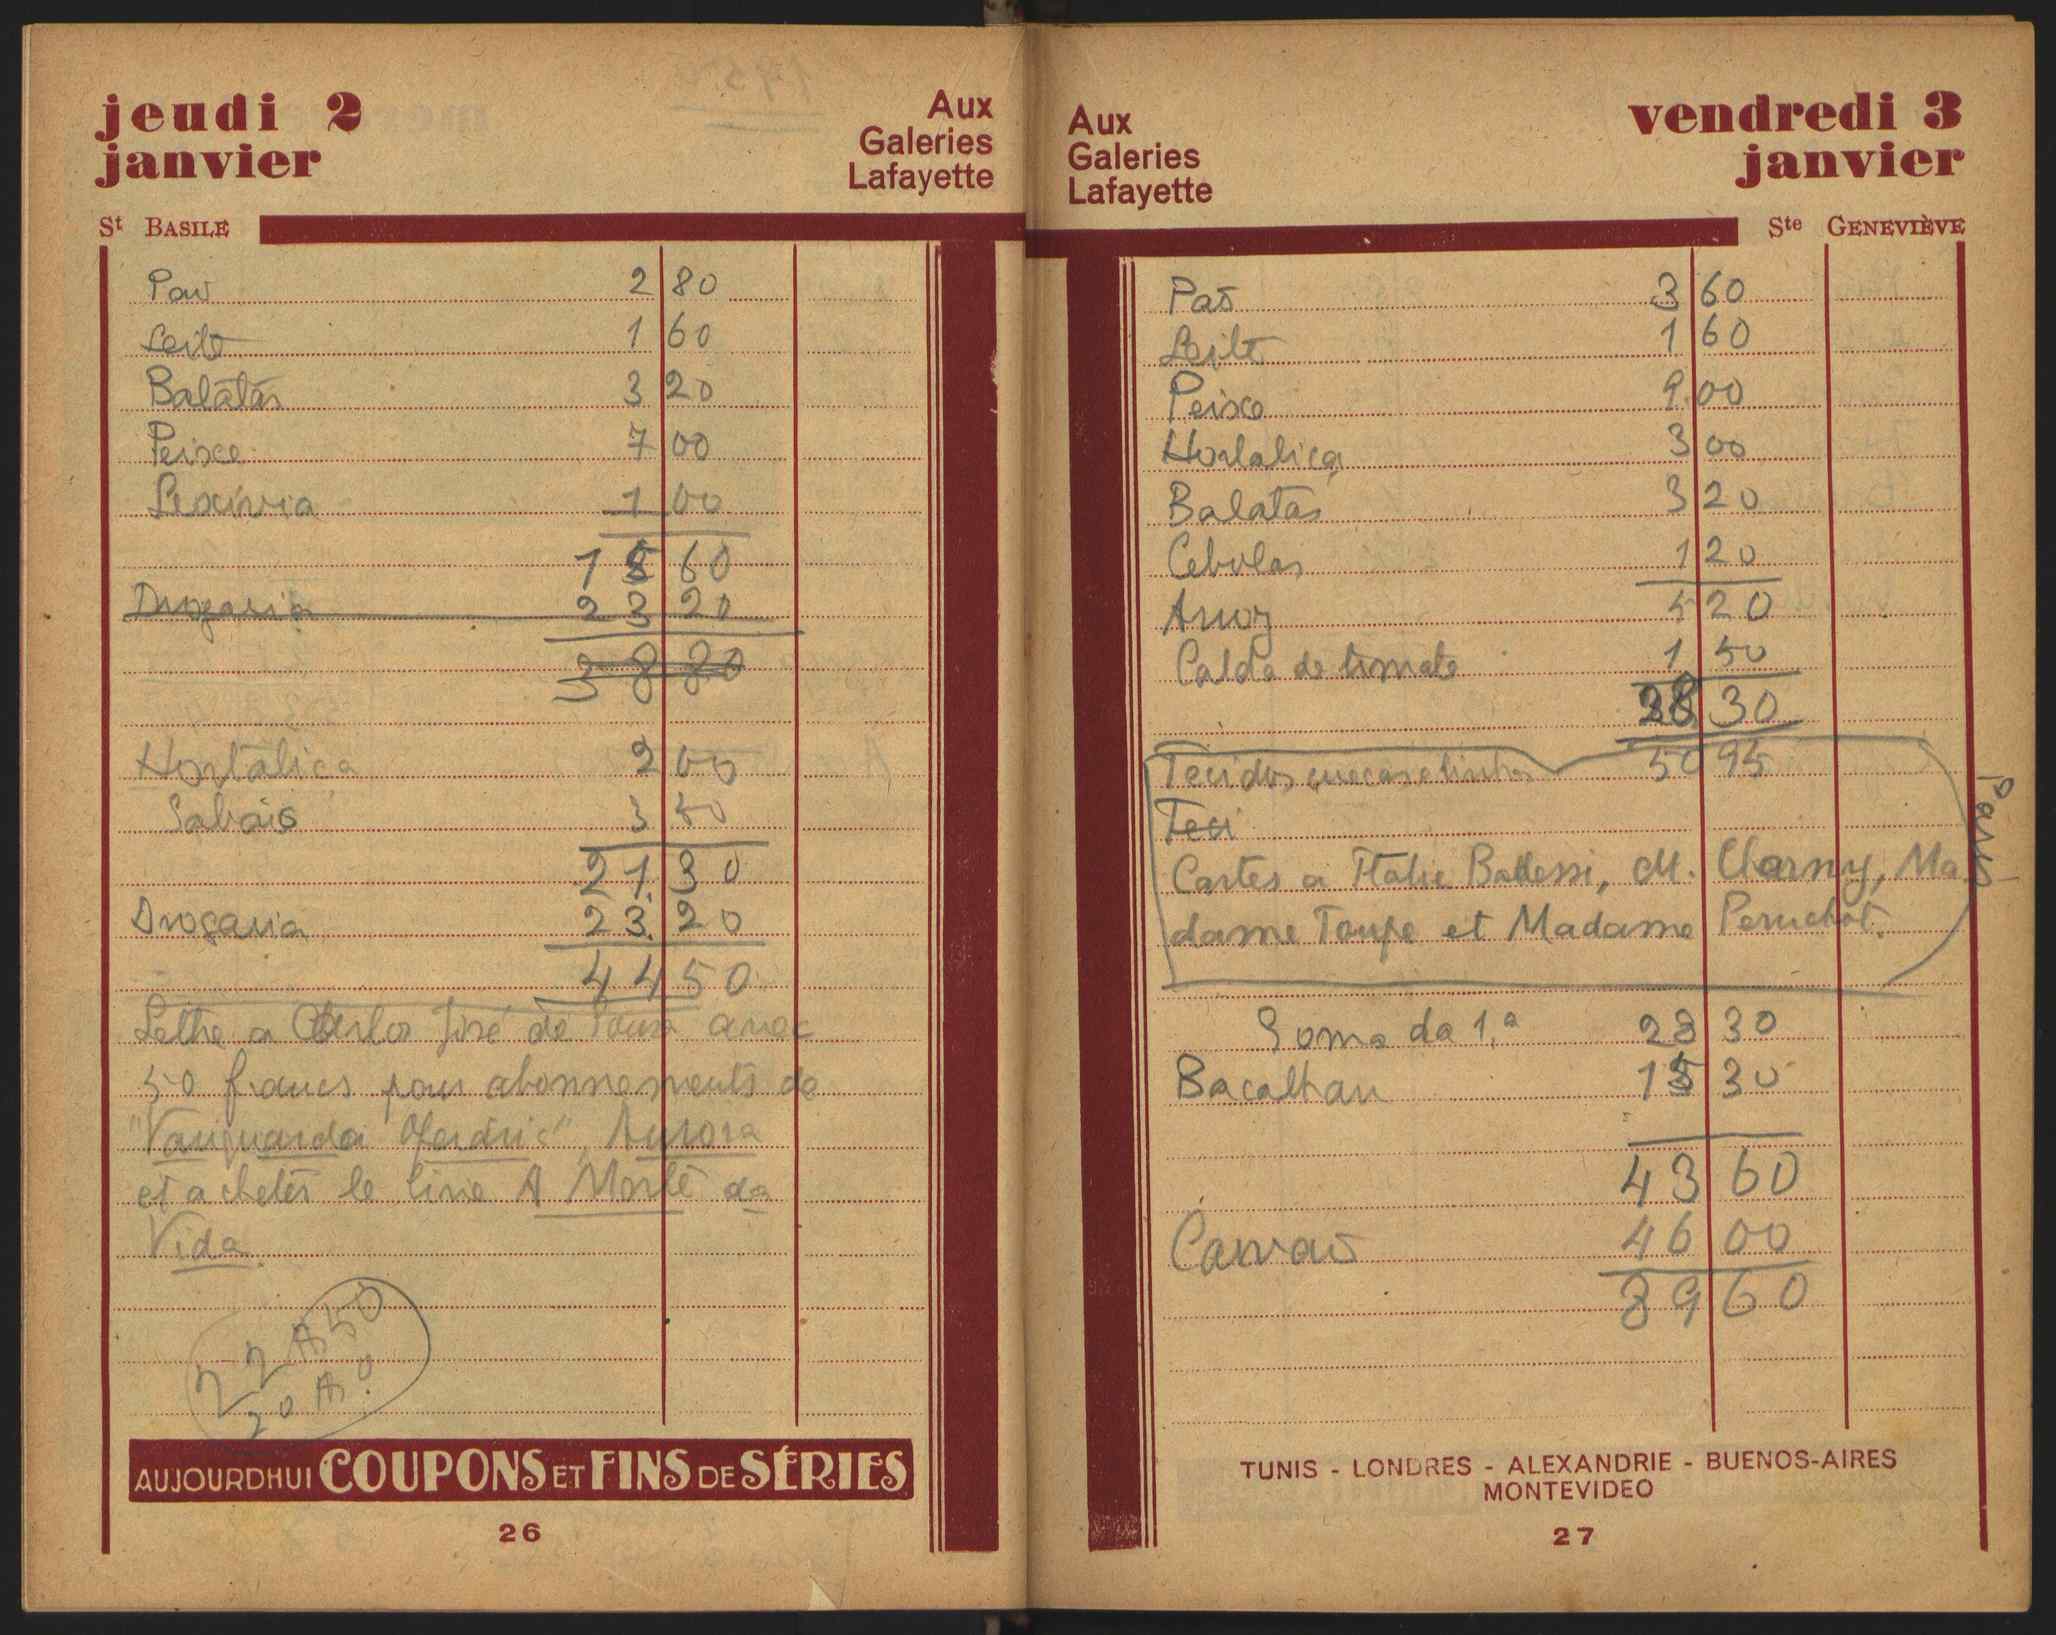 jeudi 2
janvier
Aux
Galeries
Lafayette
St BASILE
Pão 2 80
Leite 1 60
Batatas 3 20
Peixe 7 00
Lexívia 1 00
15 60
Drogaria 23 20
38 80
Hortaliça 2 00
Sabão 3 50
21. 30
Drogaria 23. 20
44 50
Lettre a José de Sousa avec
50 francs pour abonnements de
"Vanguarda Aurora
et acheter le livre A Morte da
Vida
AUJOURDHUI COUPONS ET FINS DE SÉRIES
26
Aux
Galeries
Lafayette
vendredi 3
janvier
Ste GENEVIÈVE
Pão 3 60
Leite 1 60
Peixe 9.00
Hortaliça 3 00
Batatas 3 20
Cebolas 1 20
Arroz 5 20
Calda de tomate 1 50
28 30
Tecidos 50 95
Teci
Cartes a M. Charny, Ma
dame Taupe et Madame Peruchot.
Soma da 1.ª 28 30
Bacalhau 15 30
43 60
Carvão 46 00
89 60
TUNIS - LONDRES - ALEXANDRIE - BUENOS-AIRES
MONTEVIDEO
27